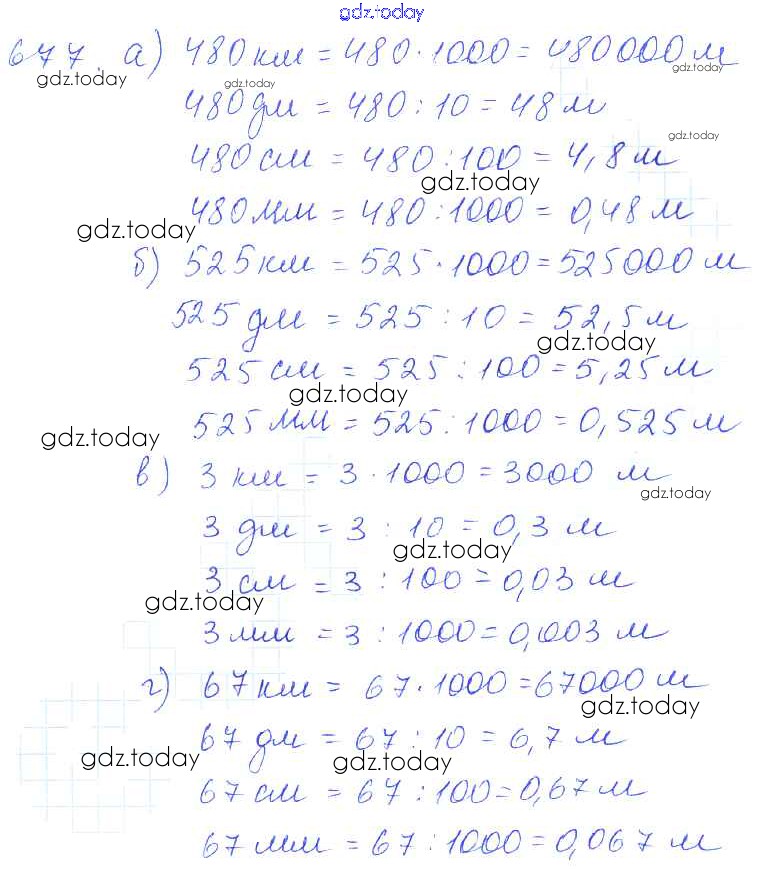 gdz.today
677. а) 480 км = 480 · 1000 = 480000 м
gdz.today gdz.today gdz.today
480 дм = 480 : 10 = 48 м
gdz.today
480 см = 480 : 100 = 4,8 м
gdz.today
480 мм = 480 : 1000 = 0,48 м
gdz.today
б) 525 км = 525 · 1000 = 525000 м
525 дм = 525 : 10 = 52,5 м
gdz.today
525 см = 525 : 100 = 5,25 м
gdz.today
525 мм = 525 : 1000 = 0,525 м
gdz.today
в) 3 км = 3 · 1000 = 3000 м
gdz.today
3 дм = 3 : 10 = 0,3 м
gdz.today
3 см = 3 : 100 = 0,03 м
gdz.today
3 мм = 3 : 1000 = 0,003 м
г) 67 км = 67 · 1000 = 67000 м
gdz.today
67 дм = 67 : 10 = 6,7 м
gdz.today gdz.today
67 см = 67 : 100 = 0,67 м
67 мм = 67 : 1000 = 0,067 м